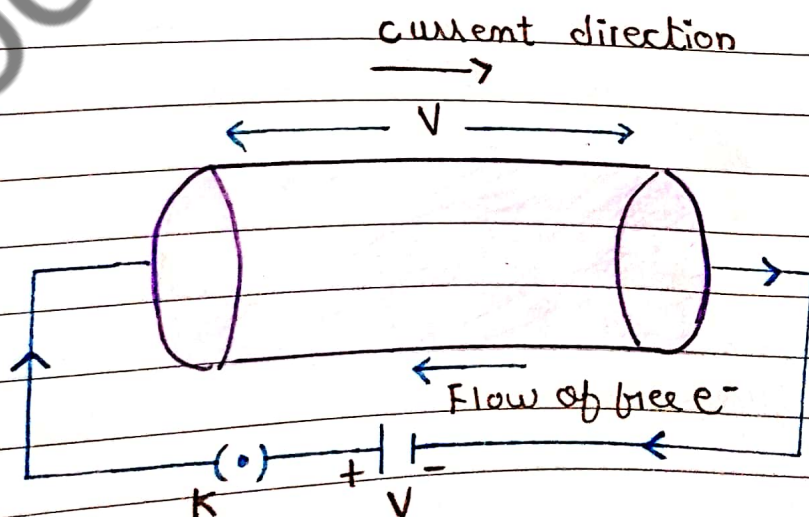 current direction
V
Flow of free e⁻
+ -
K V